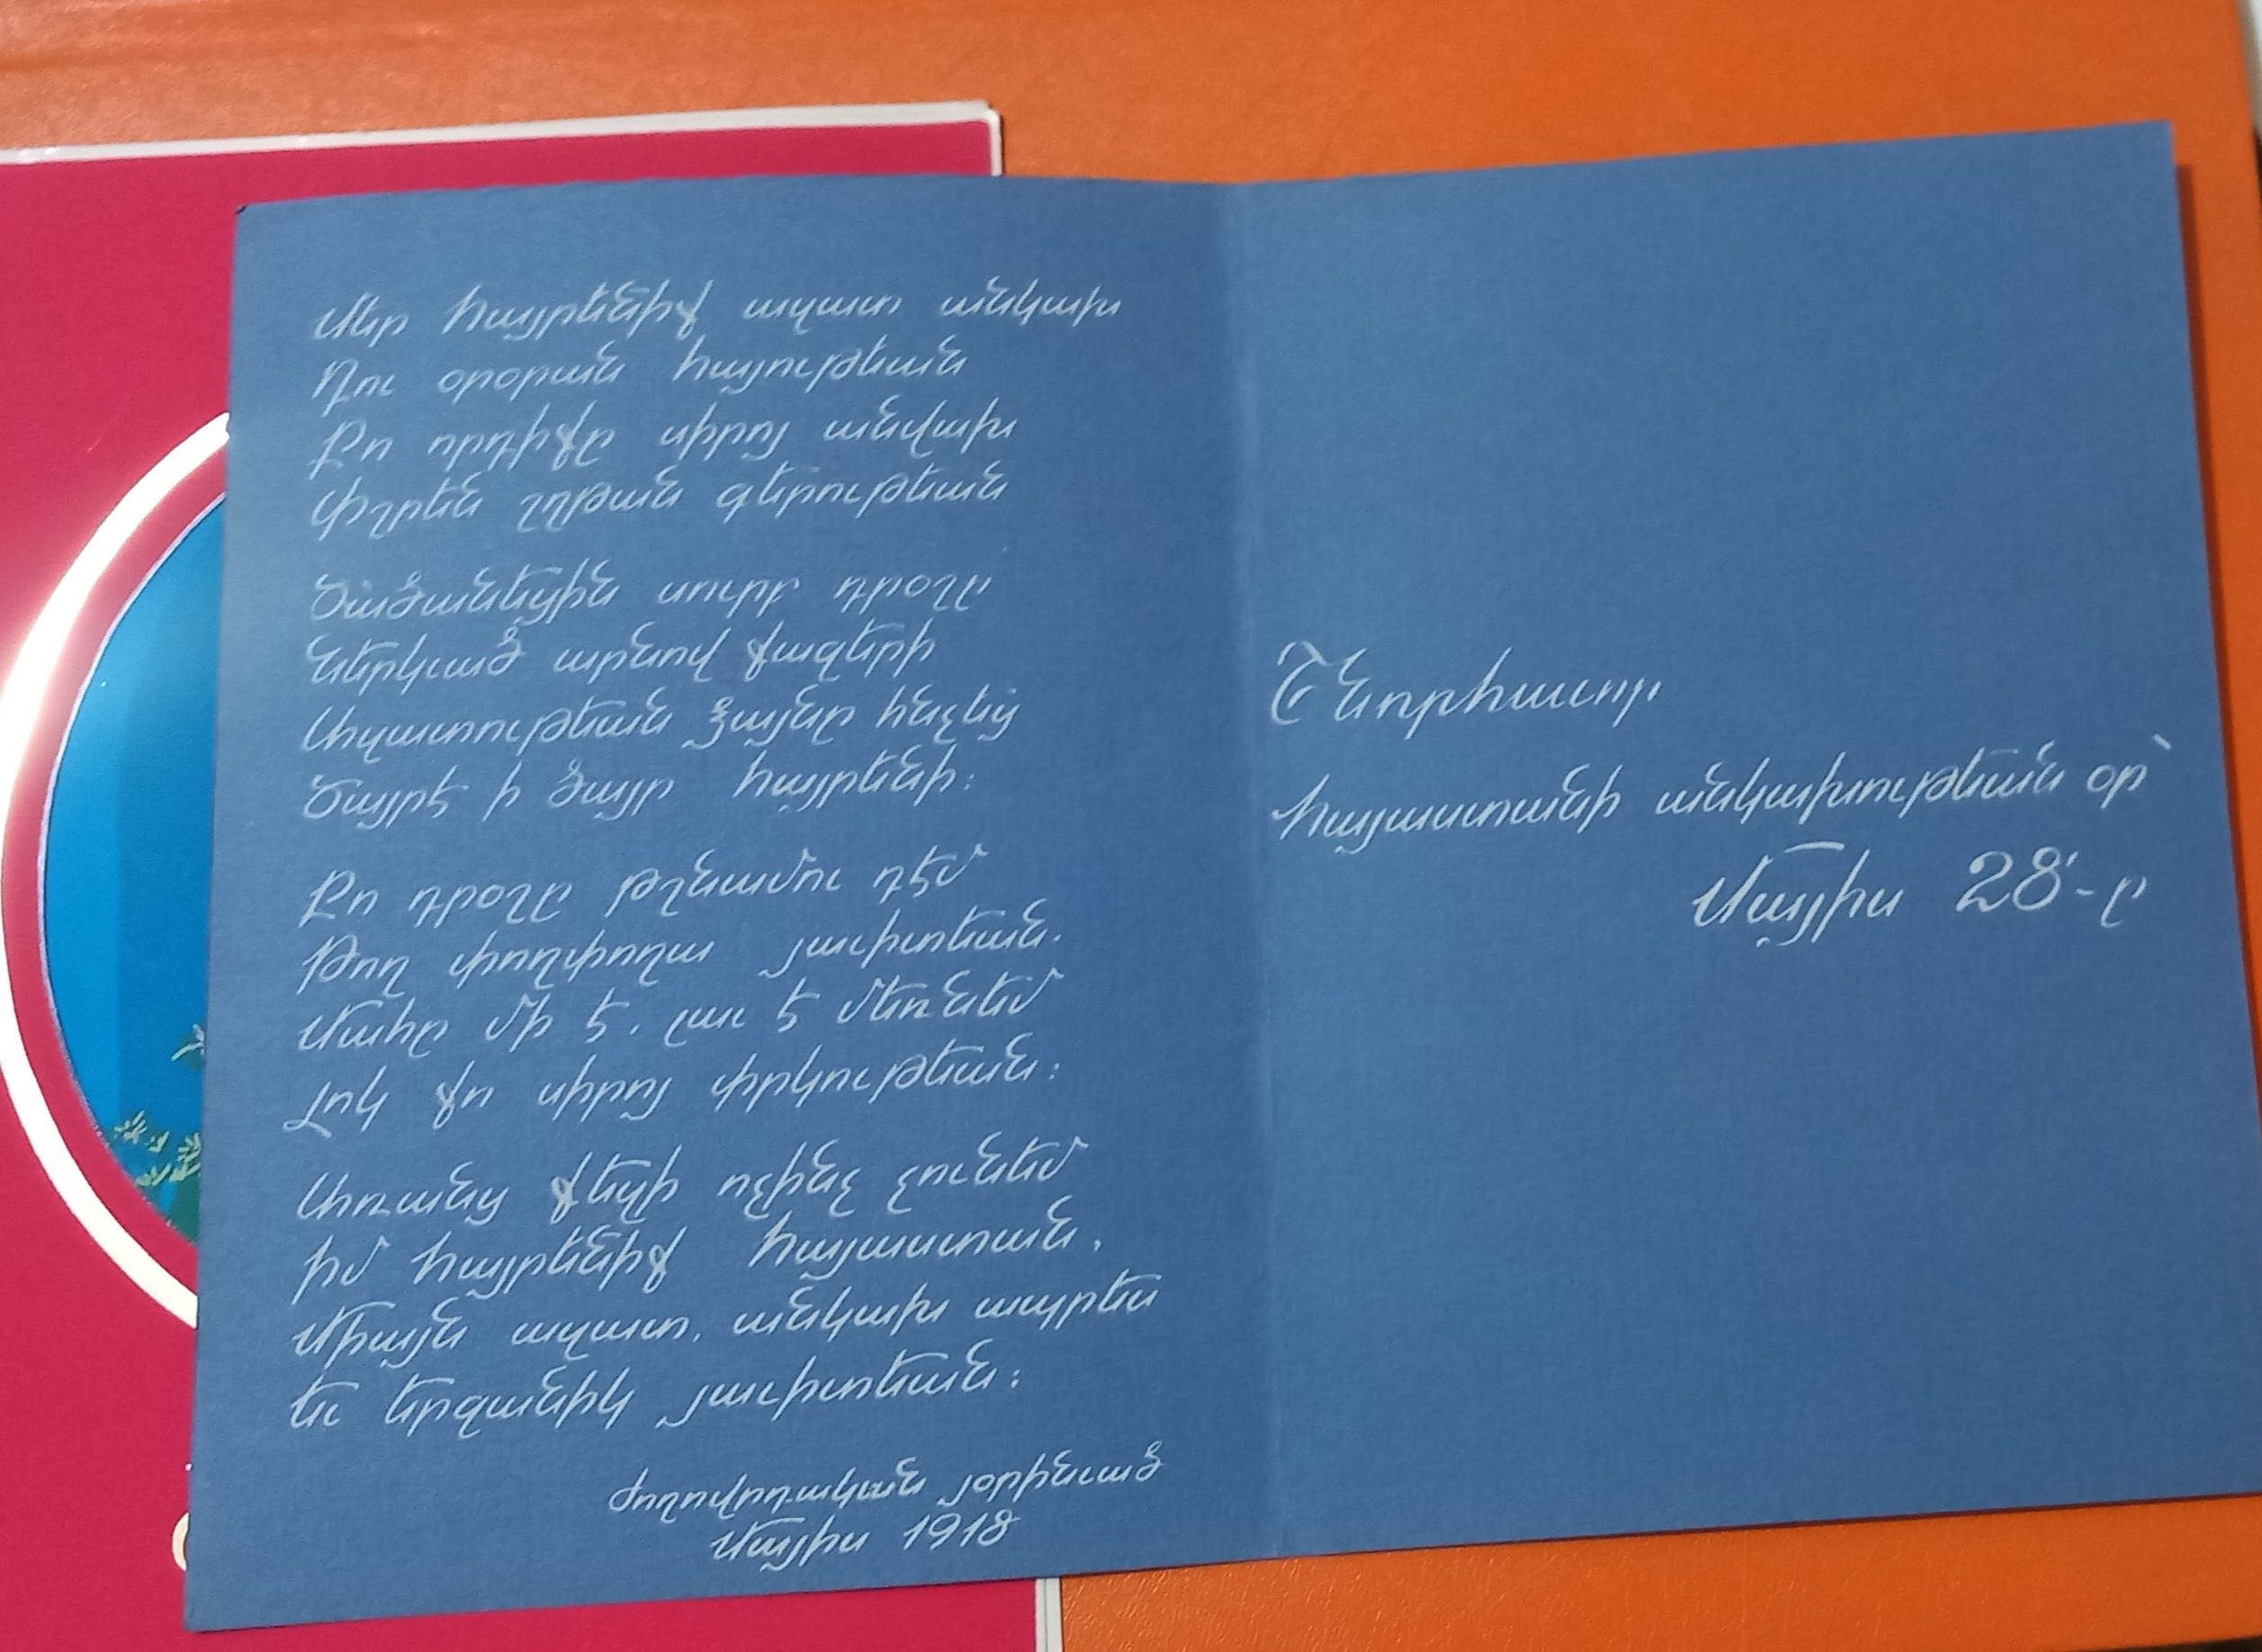 Մեր հայրենիք ազատ անկախ
Դու օրօրան հայութեան
Քո որդիքը սիրոյ անվախ
Փշրեն շղթան գերութեան
Ծածանեցին սուրբ դրօշը
Ներկւած արնով քաջերի
Ազատութեան ձայնը հնչեց
Ծայրէ ի ծայր հայրենի:
Քո դրօշը թշնամու դէմ
Թող փողփողա յաւիտեան.
Մահը մի է. լաւ է մեռնեմ
Լոկ քո սիրոյ փրկութեան:
Առանց քեզի ոչինչ չունեմ
Իմ հայրենիք Հայաստան,
Միայն ազատ, անկախ ապրես
Եւ երջանիկ յաւիտեան:
Ժողովրդական յօրինւած
Մայիս 1918
Շնորհաւոր
Հայաստանի անկախութեան օր՝
Մայիս 28'-ը